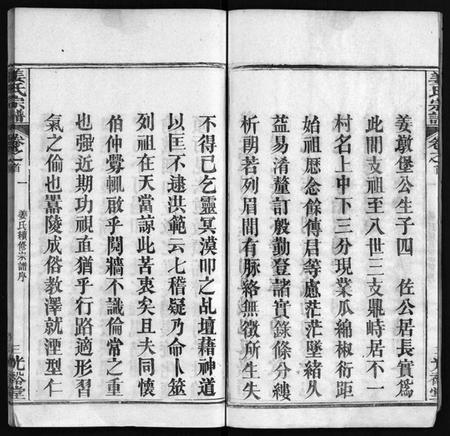 姜氏宗譜
卷之首
光裕堂
姜墩堡公生子四 佐公居長實爲
此間支祖至八世三支鼎峙居不一
村名上中下三分現業瓜綿椒衍距
始祖厯念餘傳君等慮茫茫墜緒久
益易淆釐訂殷勤登諸實錄條分縷
析朗若列眉間有脉絡無徵所生失
不得已乞靈冥漠叩之乩壇藉神道
以匡不逮洪範云七稽疑乃命卜筮
列祖在天當諒此苦衷矣且夫同懷
伯仲釁輒啟乎鬩牆不識倫常之重
也强近期功視直猶乎行路適形習
氣之偷也嚣陵成俗教澤就湮型仁
姜氏宗譜
卷之首
一
姜氏續修宗譜序
光裕堂